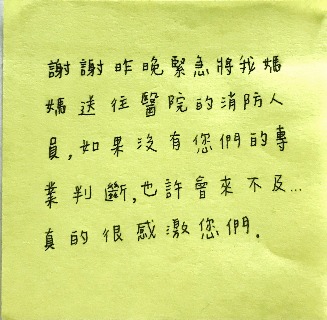 謝謝昨晚緊急將我媽
媽送往醫院的消防人
員,如果沒有您們的專
業判斷,也許會來不及...
真的很感激您們。